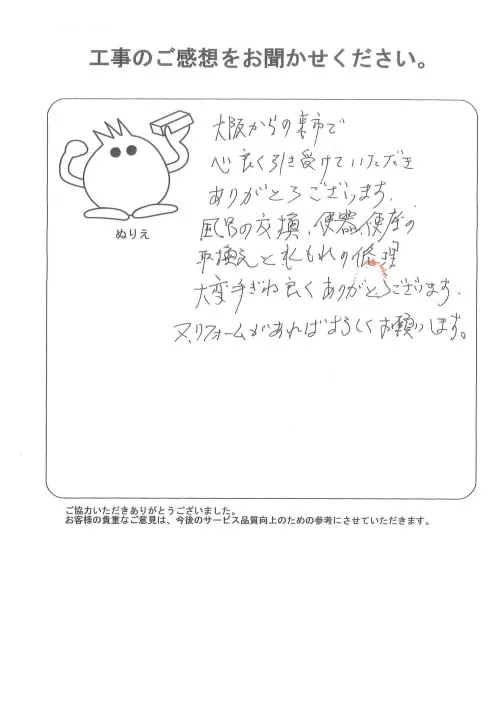 工事のご感想をお聞かせください。
大阪からの来市で
心良く引き受けていただき
ありがとうございます.
ぬりえ
風呂の交換、便器、便座の
取換えと水もれの修理
大変手ぎわ良くありがとうございます.
又、リフォームがあればよろしくお願いします。
ご協力いただきありがとうございました。
お客様の貴重なご意見は、今後のサービス品質向上のための参考にさせていただきます。